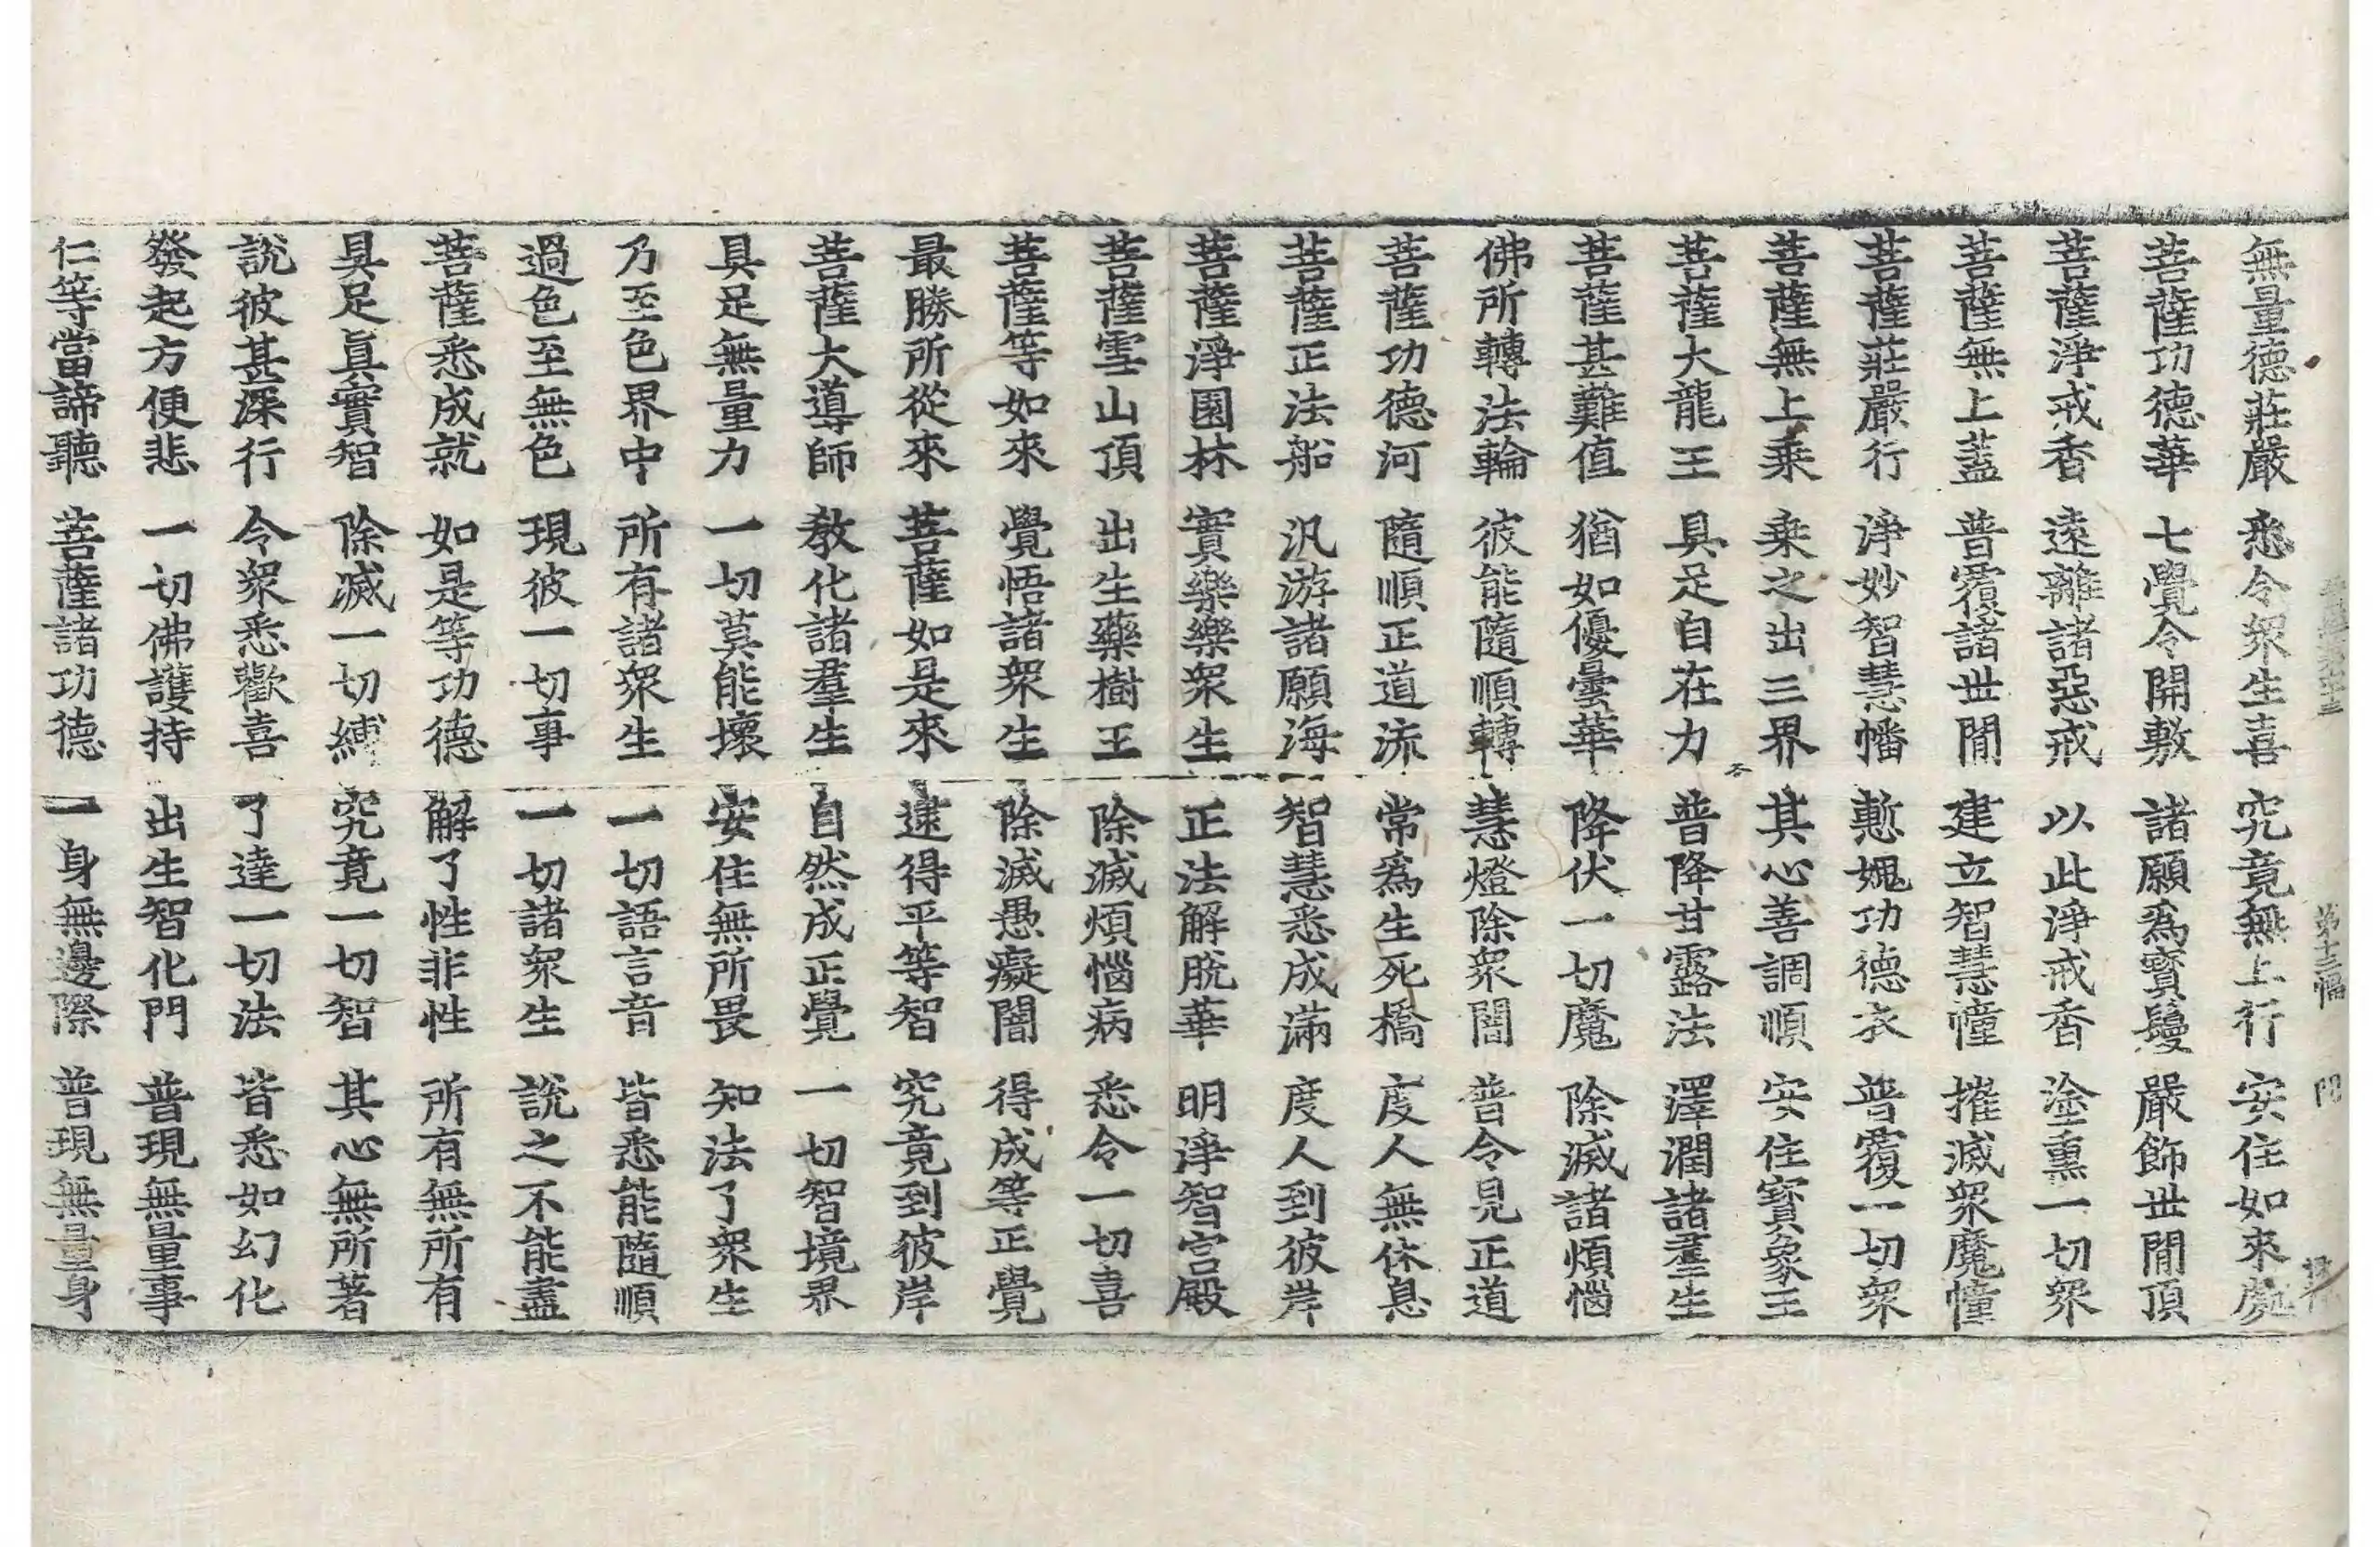 無量德莊嚴 悉令眾生喜 究竟無上行 安住如來處
菩薩功德華 七覺令開敷 諸願爲寶鬘 嚴飾世閒頂
菩薩淨戒香 遠離諸惡戒 以此淨戒香 塗熏一切眾
菩薩無上蓋 普覆諸世閒 建立智慧幢 摧滅眾魔幢
菩薩莊嚴行 淨妙智慧幡 慙媿功德衣 普覆一切眾
菩薩無上乘 乘之出三界 其心善調順 安住寶象王
菩薩大龍王 具足自在力 普降甘露法 澤潤諸羣生
菩薩甚難值 猶如優曇華 降伏一切魔 除滅諸煩惱
佛所轉法輪 彼能隨順轉 慧燈除眾闇 普令見正道
菩薩功德河 隨順正道流 常爲生死橋 度人無休息
菩薩正法船 汎游諸願海 智慧悉成滿 度人到彼岸
菩薩淨園林 實樂樂眾生 正法解脫華 明淨智宮殿
菩薩雪山頂 出生藥樹王 除滅煩惱病 悉令一切喜
菩薩等如來 覺悟諸眾生 除滅愚癡闇 得成等正覺
最勝所從來 菩薩如是來 逮得平等智 究竟到彼岸
菩薩大導師 教化諸羣生 自然成正覺 一切智境界
具足無量力 一切莫能壞 安住無所畏 知法了眾生
乃至色界中 所有諸眾生 一切語言音 皆悉能隨順
過色至無色 現彼一切事 一切諸眾生 說之不能盡
菩薩悉成就 如是等功德 解了性非性 所有無所有
具足眞實智 除滅一切縛 究竟一切智 其心無所著
說彼甚深行 令眾悉歡喜 了達一切法 皆悉如幻化
發起方便悲 一切佛護持 出生智化門 普現無量事
仁等當諦聽 菩薩諸功德 一身無邊際 普現無量身